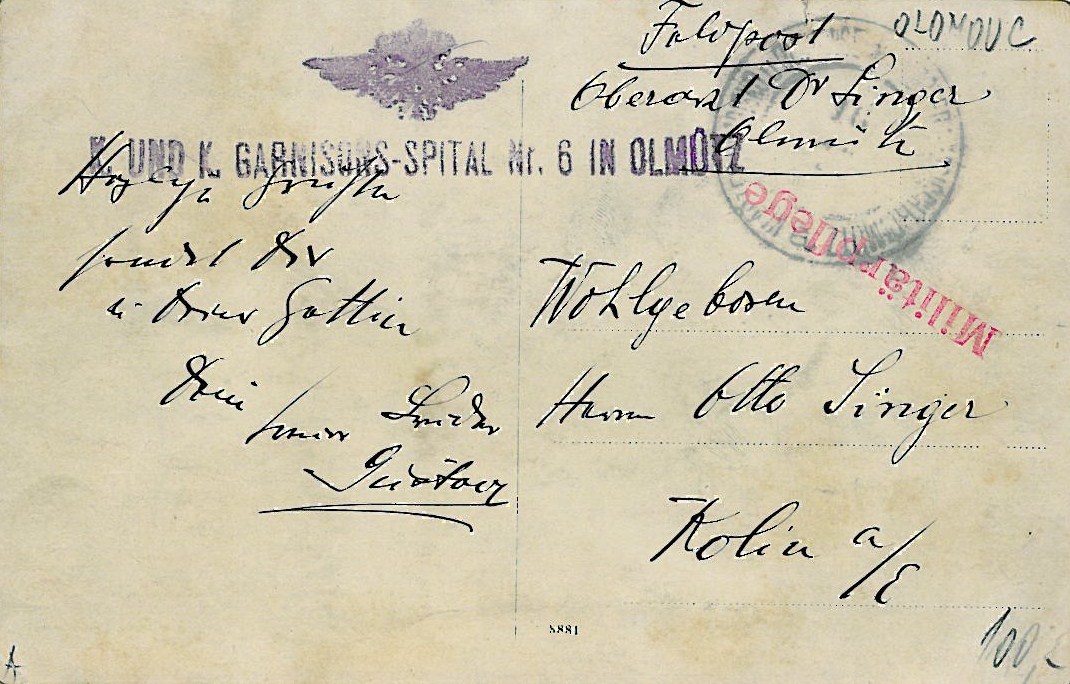 OLOMOUC
Feldpost
Oberarzt Dr Singer
Olmütz
K. UND K. GARNISONS-SPITAL Nr. 6 IN OLMÜTZ
Militärpflege
Herzliche Grüße
sendet Dir
u. Deiner Gattin
Dein
Bruder
Gustav
Wohlgeboren
Herrn Otto Singer
Kolin a/E
5881
100,-
A